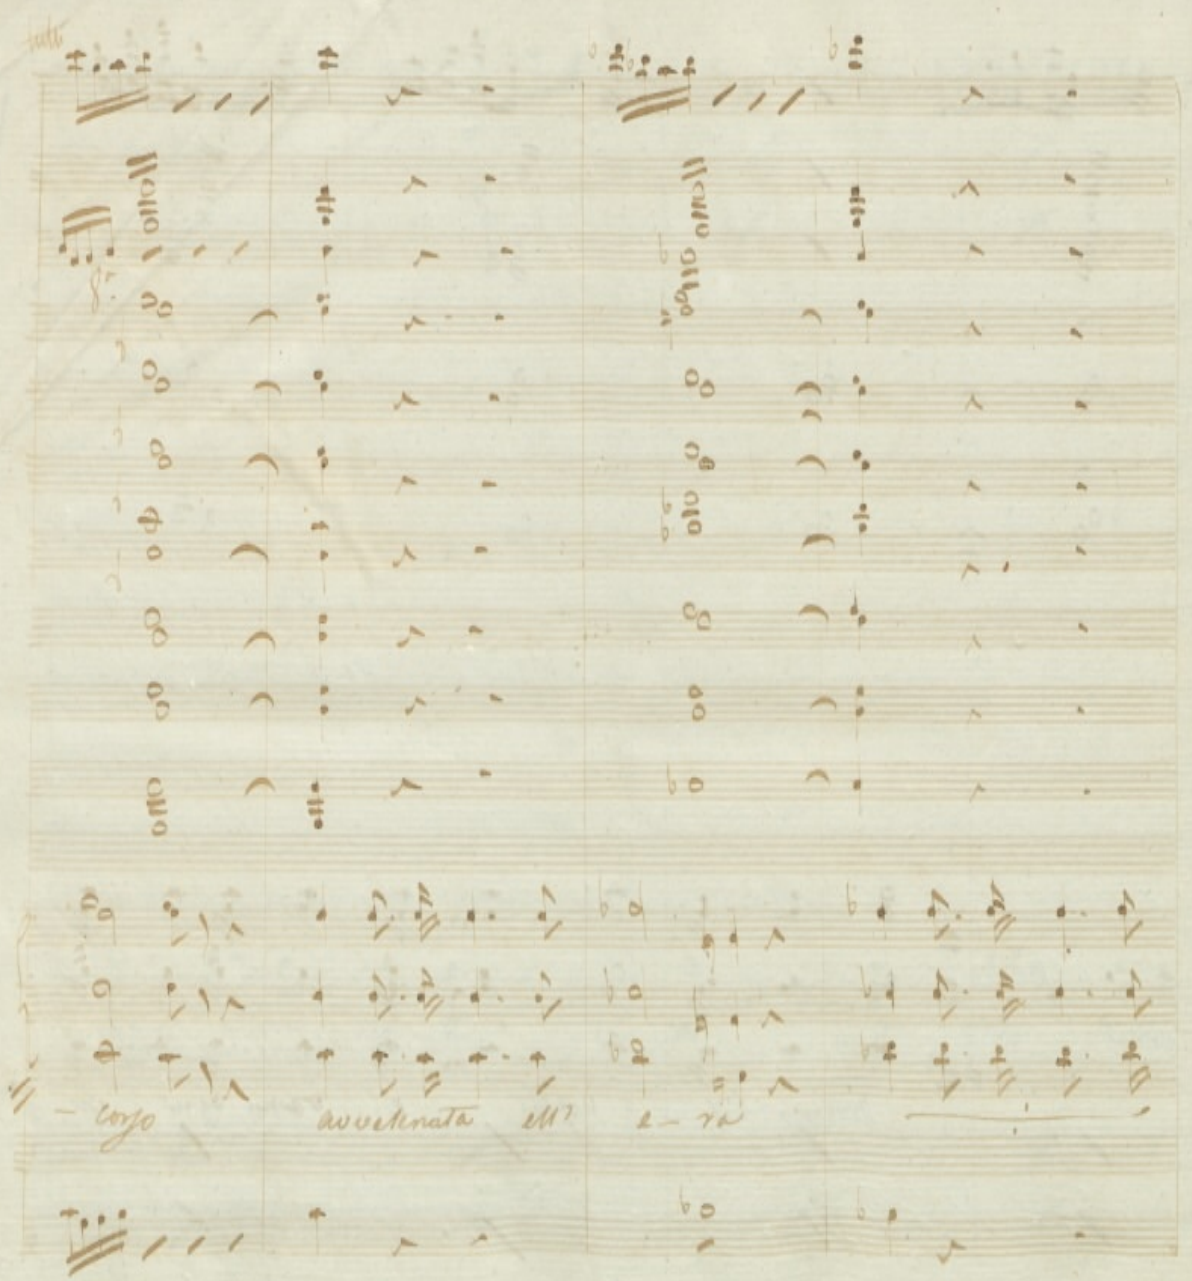 tutti
8ª
- corso avvelenata ell' e - ra